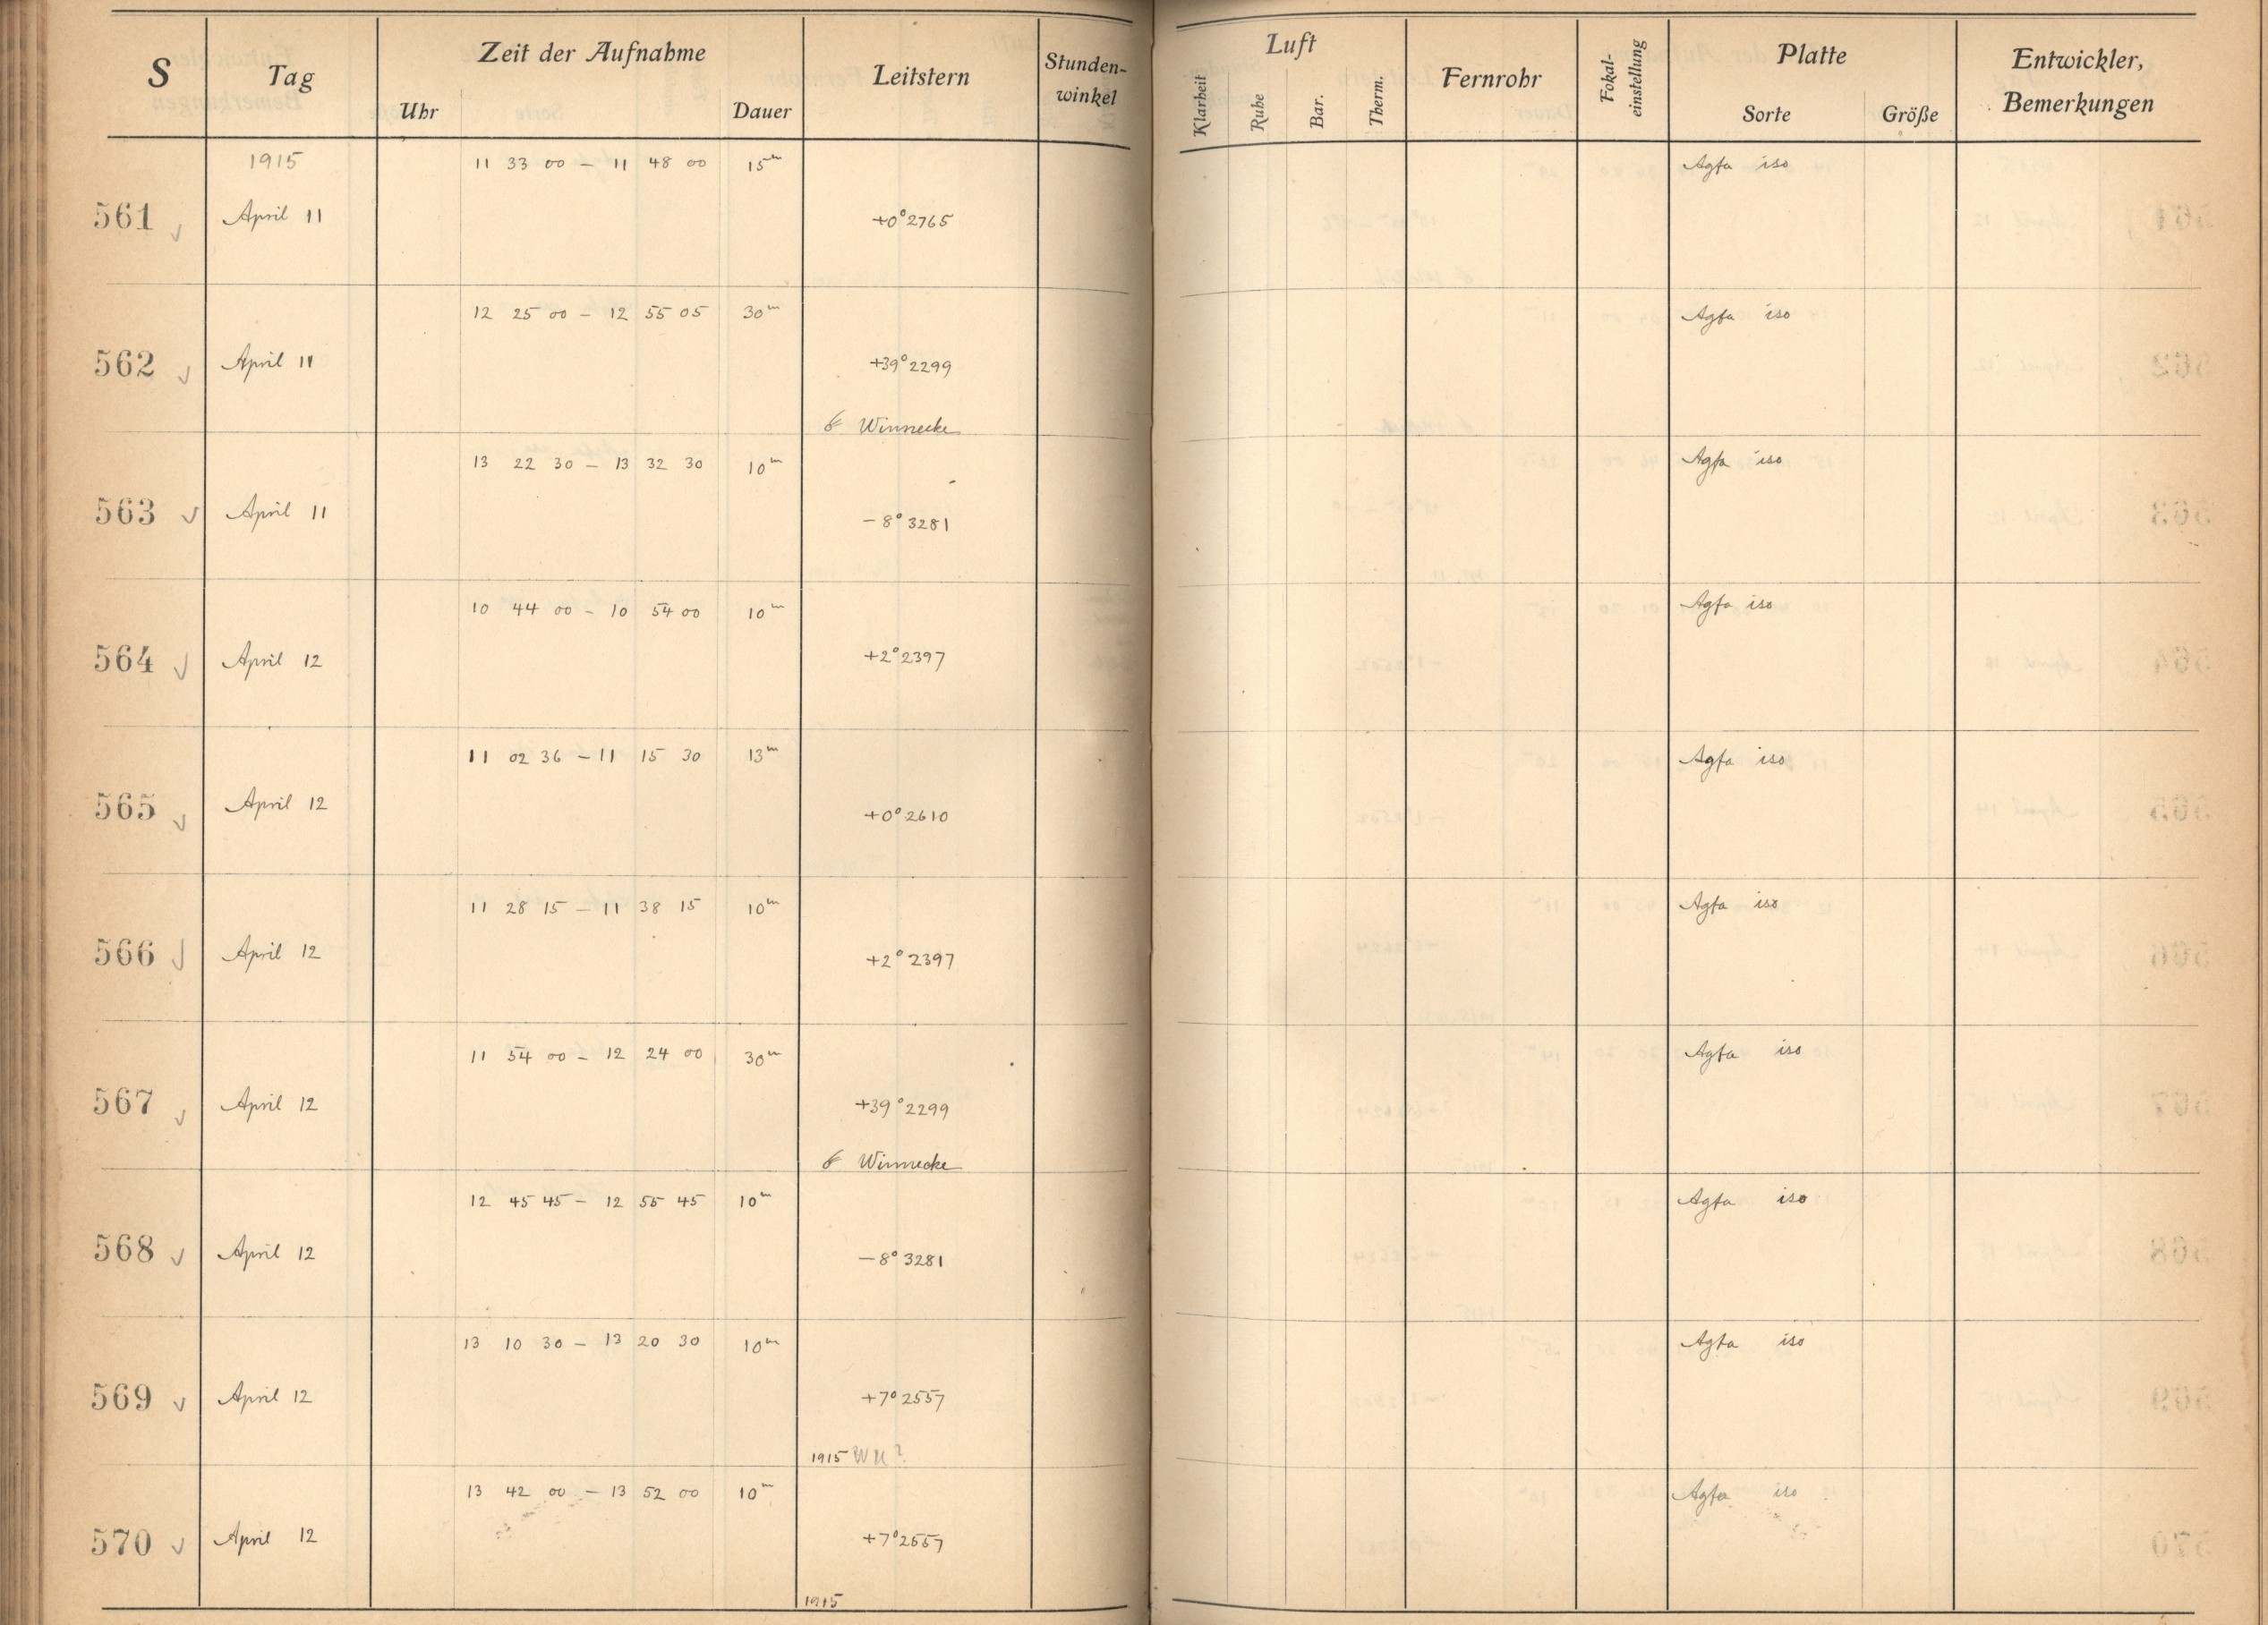 S Tag Zeit der Aufnahme Uhr Dauer Leitstern Stunden-winkel Luft Klarheit Ruhe Bar. Therm. Fernrohr Fokal-einstellung Platte Sorte Größe Entwickler, Bemerkungen
1915 11 33 00 – 11 48 00 15m Agfa iso
561 April 11 +0° 2765
12 25 00 – 12 55 05 30m Agfa iso
562 April 11 +39° 2299
Winnecke
13 22 30 – 13 32 30 10m Agfa iso
563 April 11 –8° 3281
10 44 00 – 10 54 00 10m Agfa iso
564 April 12 +2° 2397
11 02 36 – 11 15 30 13m Agfa iso
565 April 12 +0° 2610
11 28 15 – 11 38 15 10m Agfa iso
566 April 12 +2° 2397
11 54 00 – 12 24 00 30m Agfa iso
567 April 12 +39° 2299
Winnecke
12 45 45 – 12 55 45 10m Agfa iso
568 April 12 –8° 3281
13 10 30 – 13 20 30 10m Agfa iso
569 April 12 +7° 2557
1915 WU?
13 42 00 – 13 52 00 10m Agfa iso
570 April 12 +7° 2557
1915